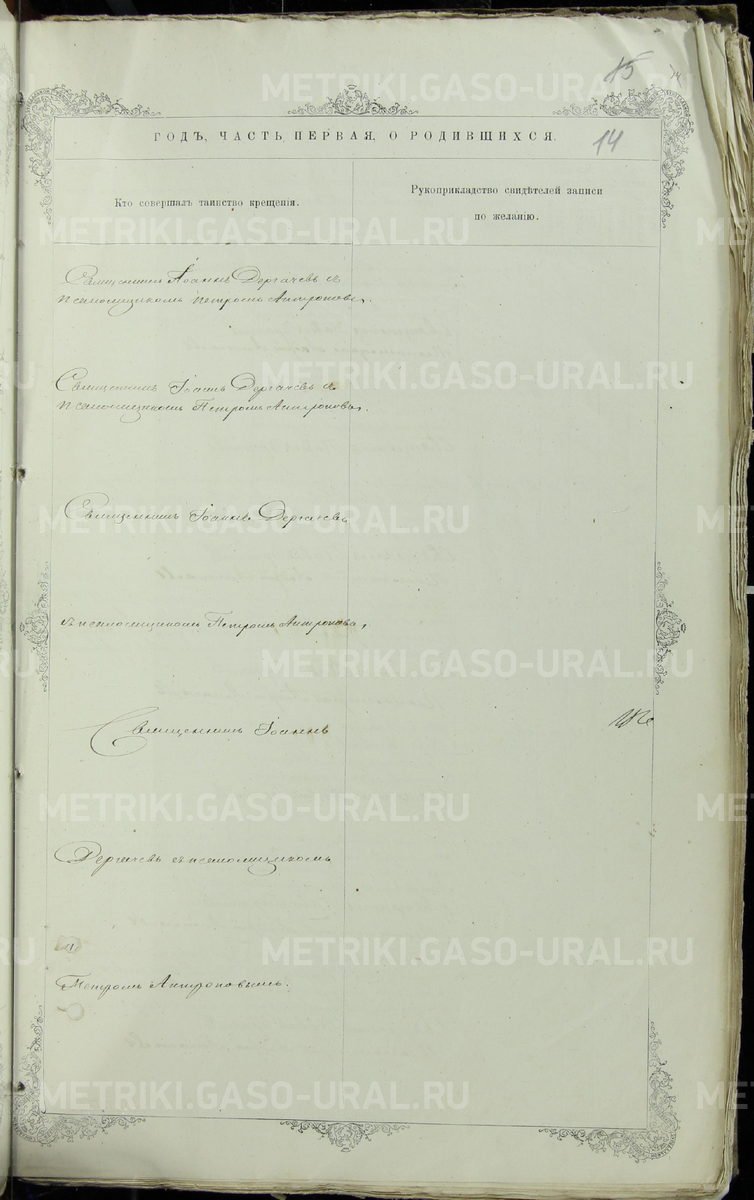 15
14
ГОДЪ, ЧАСТЬ ПЕРВАЯ, О РОДИВШИХСЯ.
14
Кто совершалъ таинство крещенія.
Рукоприкладство свидѣтелей записи
по желанію.
Священникъ Іоаннъ Дергачевъ съ
псаломщикомъ Петромъ Антроповы,
Священникъ Іоаннъ Дергачевъ съ
псаломщикомъ Петромъ Антроповы,
Священникъ Іоаннъ Дергачевъ
съ псаломщикомъ Петромъ Антропово,
Священникъ Іоаннъ
Дергачевъ съ псаломщикомъ
Петромъ Антроповымъ.
METRIKI.GASO-URAL.RU